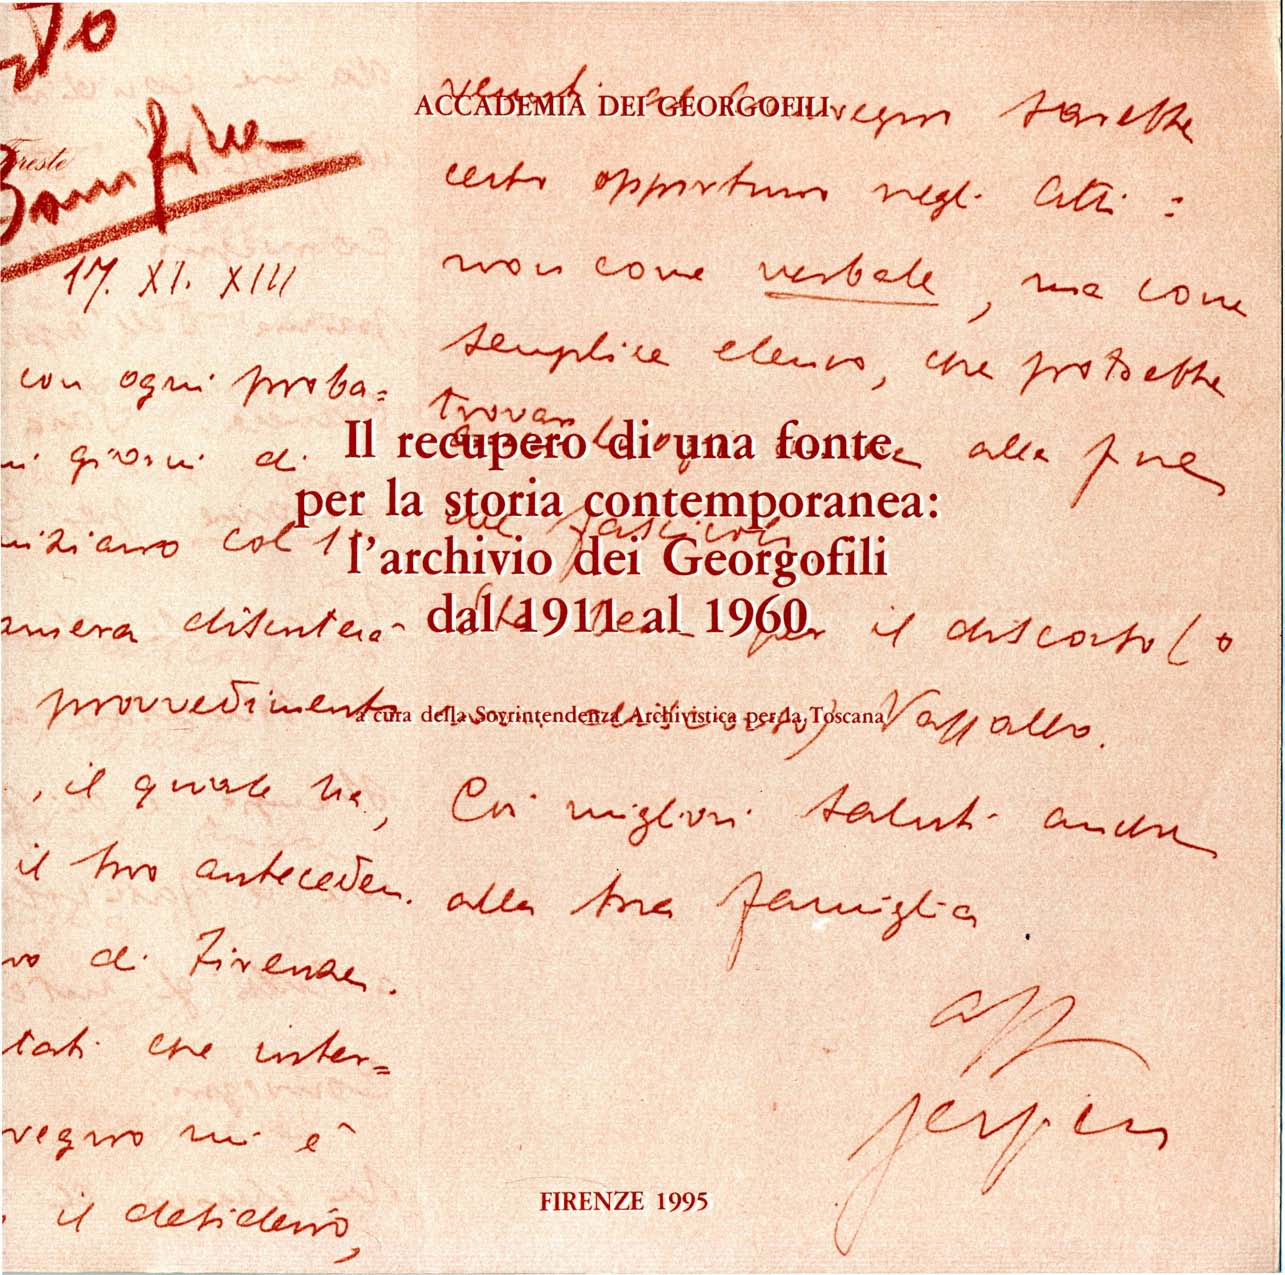 ACCADEMIA DEI GEORGOFILI
Il recupero di una fonte
per la storia contemporanea:
l'archivio dei Georgofili
dal 1911 al 1960
a cura della Sovrintendenza Archivistica per la Toscana
FIRENZE 1995
17. XI. XIII
con ogni proba=
giorni di
col
provvedimento
, il quale ha,
il tuo anteceden.
di Firenze.
che inter=
vegno mi è
il desiderio,
sarebbe
certo opportuno negli Atti:
non come verbale, ma come
semplice elenco, che potrebbe
trovar
alla fine
dei fascicoli
per il discorso (o
Vassallo.
Coi migliori saluti anche
alla tua famiglia
aff